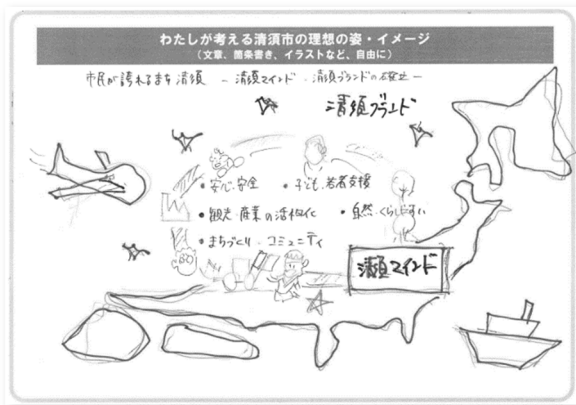 わたしが考える清須市の理想の姿・イメージ
（文章、箇条書き、イラストなど、自由に）
市民が誇れるまち清須 ― 清須マインド・清須ブランドの確立 ―
清須ブランド
・安心・安全 ・子ども、若者支援
・観光・産業の活性化 ・自然・くらしやすい
・まちづくり・コミュニティ
清須マインド